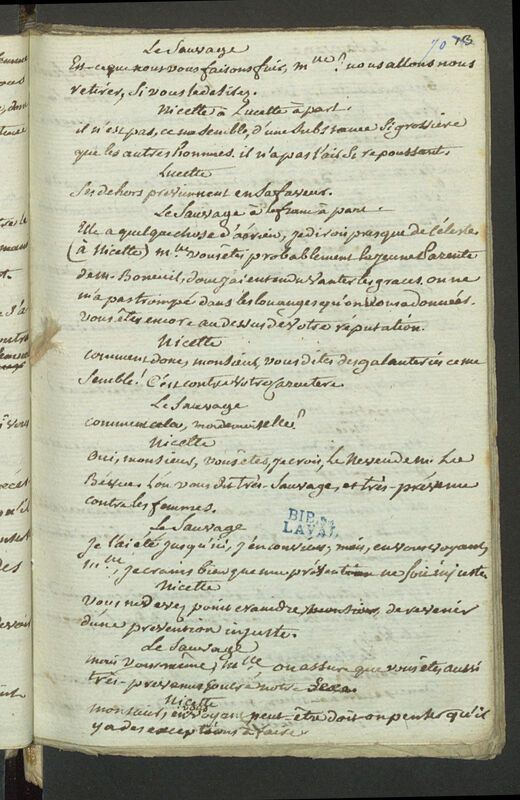 70 73
Le Sauvage
Est-ceque nous vous faisons fuir, mlle? nous allons nous
retirer, Si vous le desirez.
Nicette à Lucette à part.
il n'est pas, ce me semble, d'une Substance Si grossière
que les autres hommes. il n'a pas l'air Si repoussant.
Lucette
Ses dehors previennent en Sa faveur.
Le Sauvage à part.
Elle a quelque chose d'aërien, je dirois presque de céleste
(à Nicette) mlle vous etes probablement la jeune Parente
de m. Boneuil, dont j'ai entendu vanter les graces. on ne
m'a pas trompé dans les louanges qu'on vous a données.
Vous êtes encore au dessus de votre réputation.
Nicette
comment donc, monsieur, vous dites des galanteries ce me
Semble! C'est contre votre Caractere
Le Sauvage
comment cela, mademoiselle?
Nicette
Oui, monsieur, vous êtes, je crois, le Neveu de m. De
l'on vous dit très-Sauvage, et très-prévenu
contre les femmes.
Le Sauvage
BIB. DE
LAVAL
Je l'ai été jusqu'ici, j'en conviens, mais, en vous voyant,
mlle, je crains bien que ma prévention ne Soit injuste.
Nicette
Vous ne devez point craindre monsieur, de revenir
d'une prevention injuste.
Le Sauvage
mais vous même, mlle on assure que vous êtes aussi
très-prevenue contre notre Sexe.
Nicette
monsieur, en vous voyant peut-être doit on penser qu'il
y a des exceptions à faire